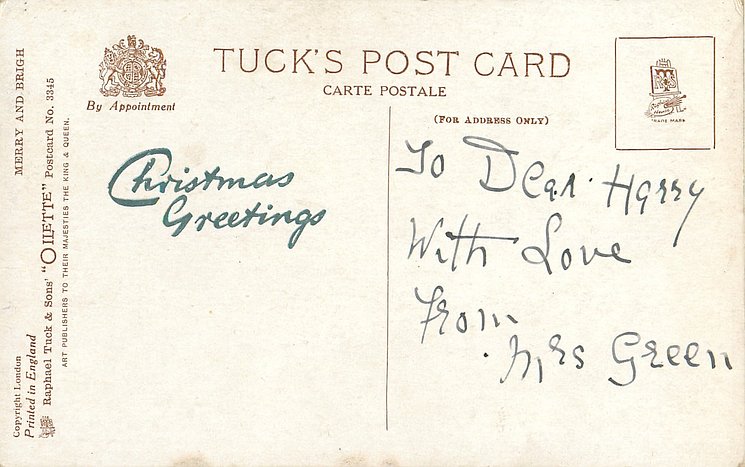 TUCK'S POST CARD
CARTE POSTALE
By Appointment
(FOR ADDRESS ONLY)
TRADE MARK
Christmas
Greetings
To Dear Harry
With Love
From
Mrs Green
MERRY AND BRIGH
Raphael Tuck & Sons' "OILETTE" Postcard No. 3345
ART PUBLISHERS TO THEIR MAJESTIES THE KING & QUEEN.
Copyright London
Printed in England